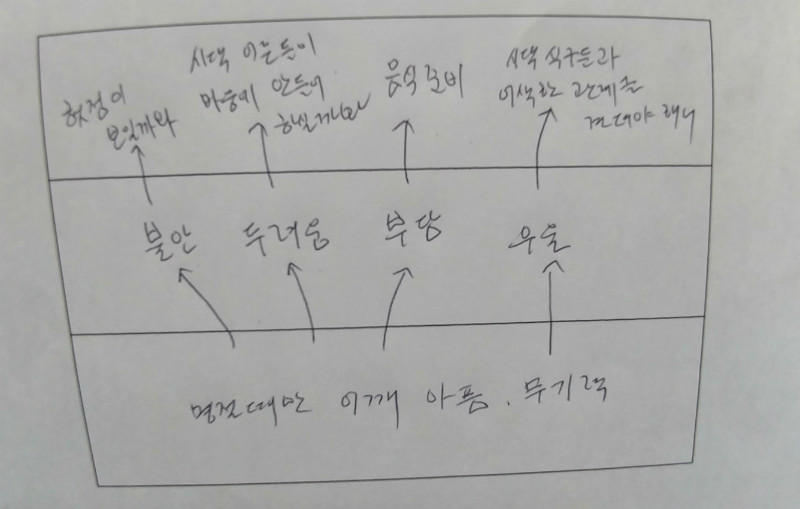 허점이
보일까봐
시댁 어른들이
마음에 안들어
하실까봐
음식준비
시댁 식구들과
어색한 관계를
견뎌야 해서
불안
두려움
부담
우울
명절때만 어깨 아픔. 무기력